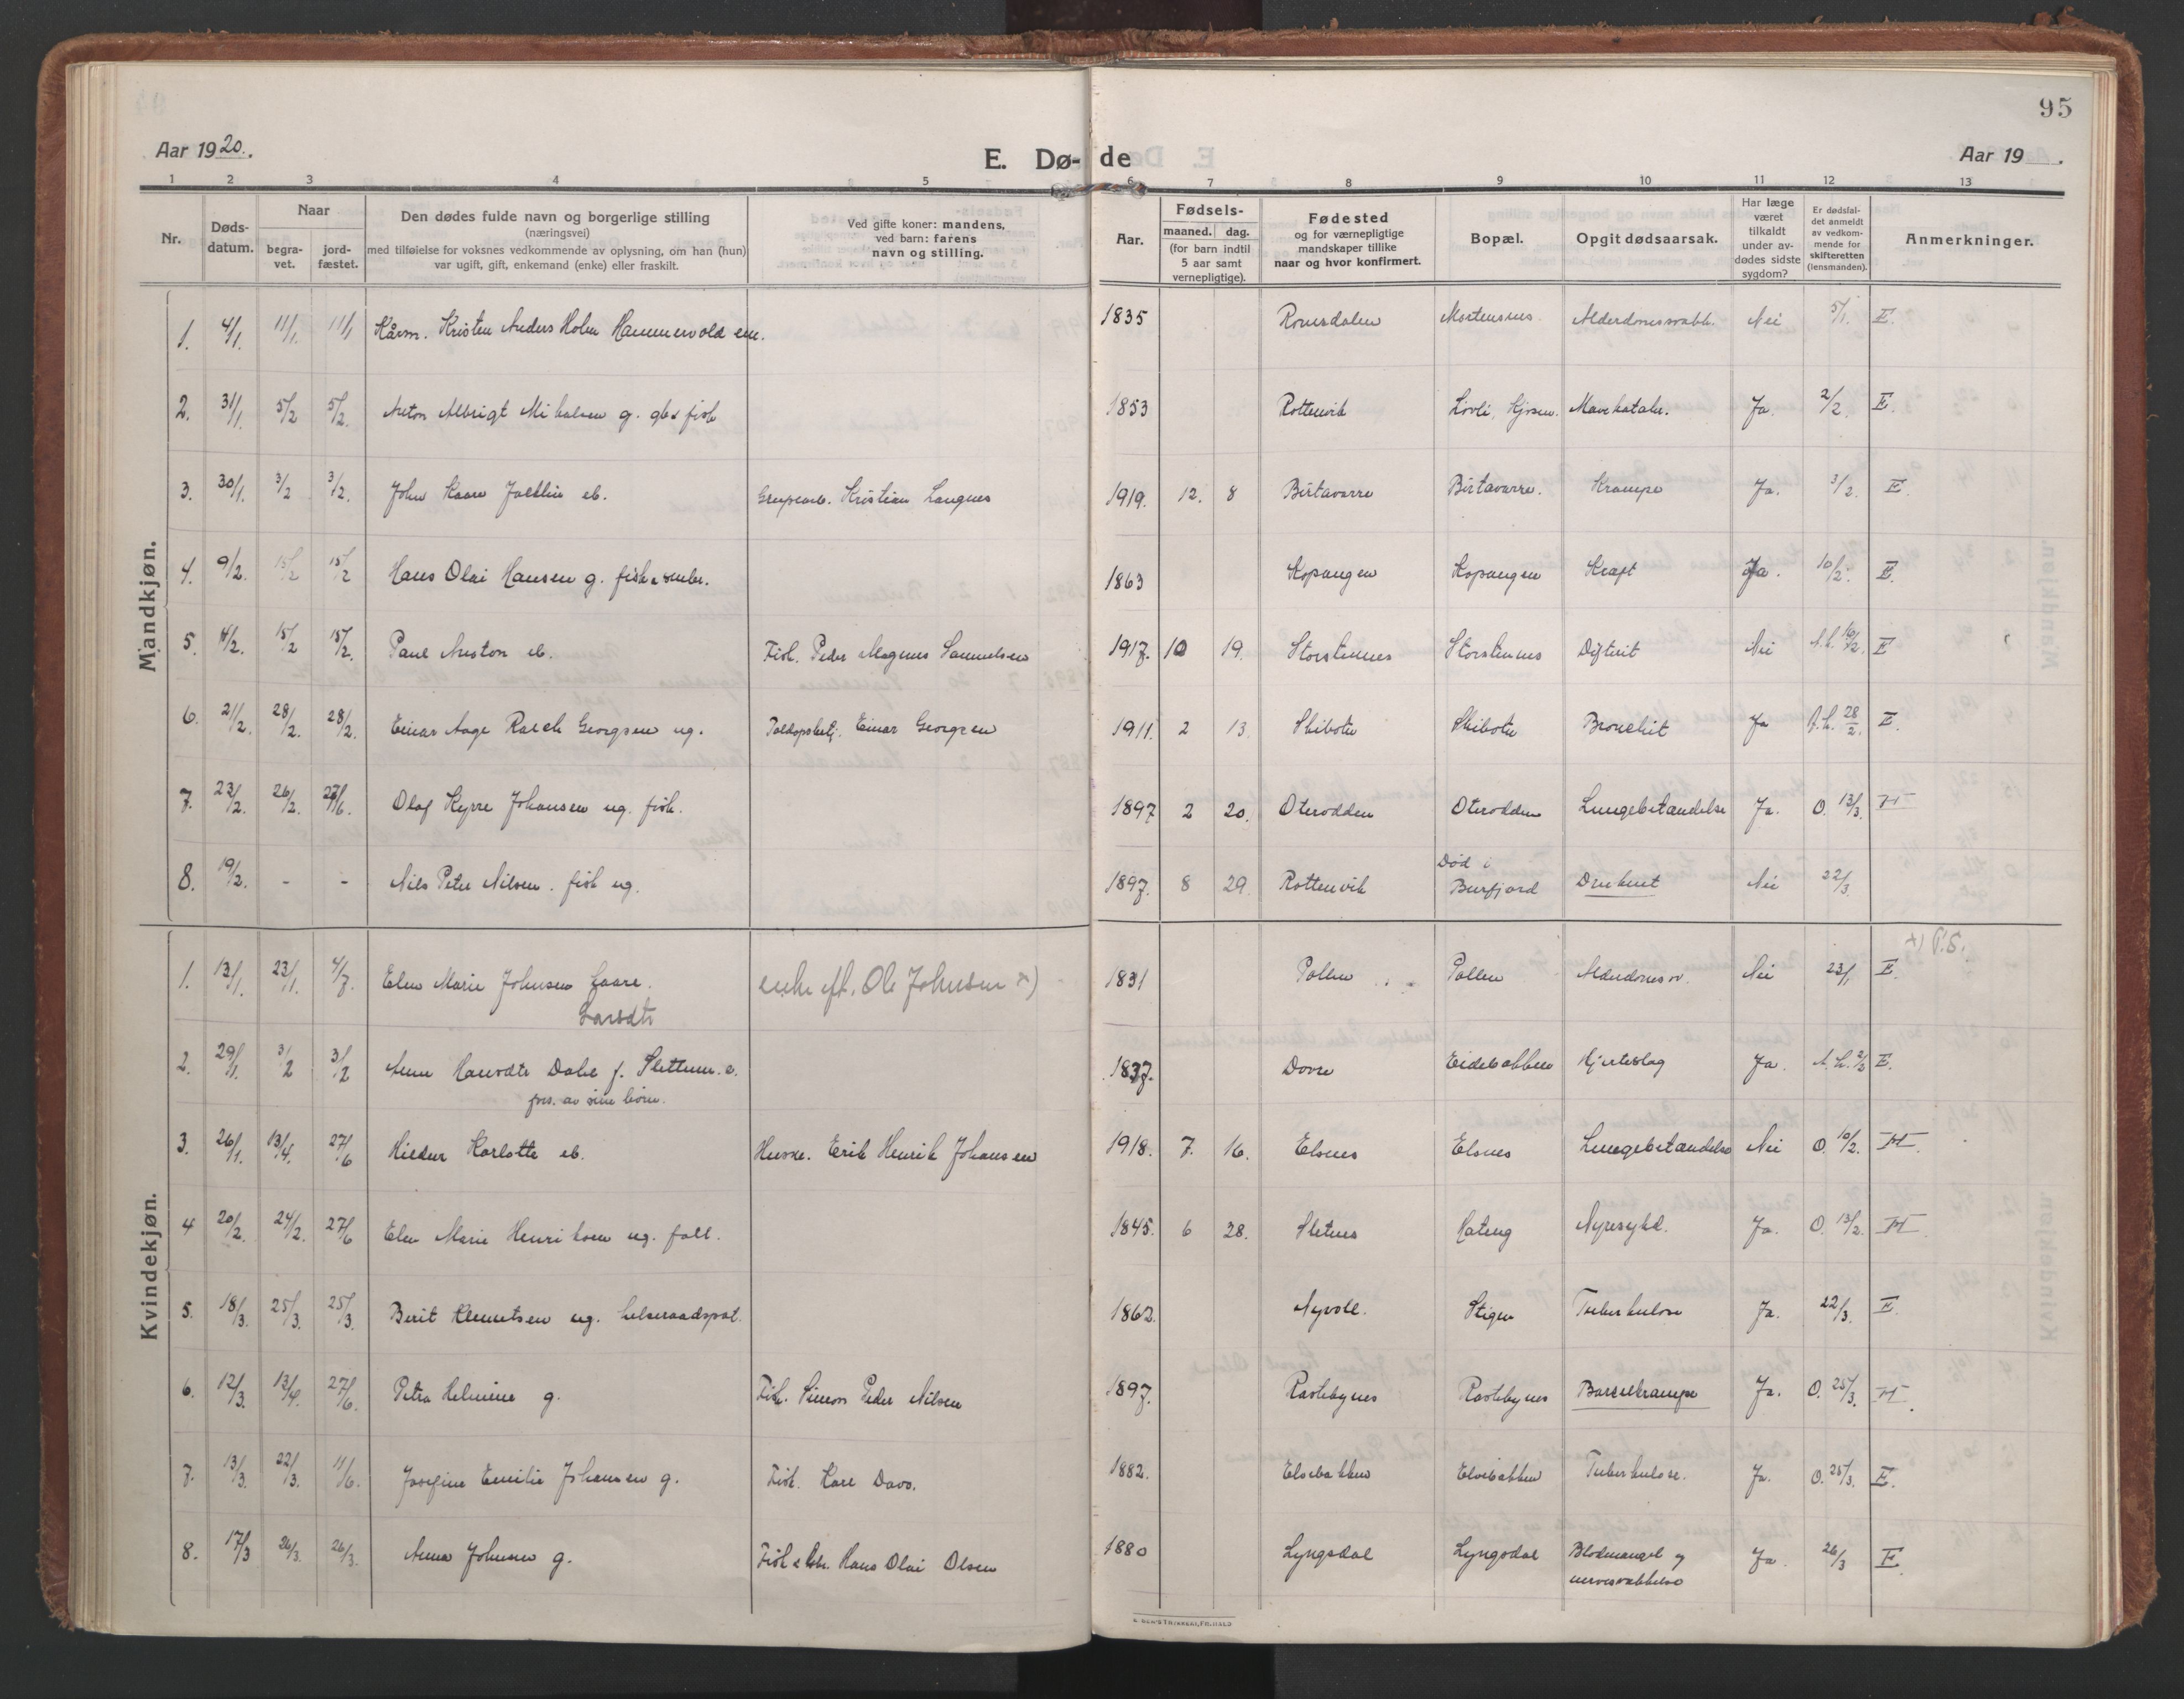 95
Aar 1920.
E. Dø-de
Aar 19 .
1 2 3 4 5 6 7 8 9 10 11 12 13
Nr.
Døds-
datum.
Naar
begra-
vet.
jord-
fæstet.
Den dødes fulde navn og borgerlige stilling
(næringsvei)
med tilføielse for voksnes vedkommende av oplysning, om han (hun)
var ugift, gift, enkemand (enke) eller fraskilt.
Ved gifte koner: mandens,
ved barn: farens
navn og stilling.
Aar.
Fødsels-
maaned. dag.
(for barn indtil
5 aar samt
vernepligtige).
Fødested
og for værnepligtige
mandskaper tillike
naar og hvor konfirmert.
Bopæl.
Opgit dødsaarsak.
Har læge
været
tilkaldt
under av-
dødes sidste
sygdom?
Er dødsfal-
det anmeldt
av vedkom-
mende for
skifteretten
(lensmanden).
Anmerkninger.
Mandkjøn.
1. 4/1. 11/1. 11/1 Kårm. Kristen Anders Holm Hammervold em. 1835 Romsdalen Mortensnes. Alderdomssvakh. Nei 5/1. E.
2. 31/1. 5/2 5/2. Anton Albrigt Mikalsen g. gbr fisk 1853 Rottenvik Lovli, Kjosen. Mavekatahr. Ja. 2/2. E.
3. 30/1. 3/2 3/2. John Kaare eb. Kristian Langnes 1919. 12. 8 Birtavarre Birtavarre. Krampe Ja. 3/2. E.
4. 9/2. 15/2 15/2 Hans Olai Hansen g. fisk & 1863 Kopangen Kopangen Kræft Ja. 10/2. E.
5. 11/2. 15/2 15/2. Paul Anston eb. Fisk. Peder Magnus Samuelsen 1917. 10 19. Storstennes Storstennes Difterit Nei 16/2. E
6. 21/2. 28/2. 28/2. Einar Aage Rasch Georgsen ug. Toldopsbetj. Einar Georgsen 1911. 2 13. Skibotn Skibotn Bronchit Ja 28/2. E.
7. 23/2. 26/2. 27/6. Olaf Kyrre Johansen ug. fisk. 1897 2 20. Oterodden Oterodden Lungebetændelse Ja. O. 13/3. H
8. 19/2. - - Nils Peter Nilsen. fisk ug. 1897. 8 29. Rottenvik Død i
Burfjord Druknet Nei 22/3.
Kvindekjøn.
1. 13/1. 23/1. 4/7. Elen Marie Johnsen
Larsdtr enke eft. Ole Johnsen x) 1831 Pollen Pollen Alderdomssv. Nei 23/1 E. x) P.S.
2. 29/1. 3/2 3/2 Anne Hansdtr Dahl f. Slettum. e.
fors. av sine børn. 1837. Dovre Eidebakken Hjerteslag Ja. E.
3. 26/1. 13/4. 27/6 Hildur Karlotte eb. Husm. Erik Henrik Johansen 1918. 7. 16. Elsnes Elsnes Lungebetændelse Nei O. 10/2. H.
4 20/2. 24/2. 27/6 Elen Marie Henriksen ug. fatt. 1845. 6 28. Sletnes Kateng Nyresykd. Ja. O. 13/2. H
5. 18/3. 25/3. 25/3. Berit Klemetsen ug. helseraadspat. 1862. Nyvoll. Stigen Tuberkulose Ja. 22/3. E.
6. 12/3. 13/4. 27/6. Petra Helmine g. Fisk. Simon Peder Nilsen 1897. Rastebynes Rastebynes Barselkrampe Ja. O. 25/3. H.
7. 13/3. 22/3. 11/6. Josefine Emilie Johansen g. Fisk. Kare Davs. 1882. Elvebakken Elvebakken Tuberkulose. Ja. O. 25/3. E.
8. 17/3 26/3. 26/3. Anna Johnsen g. Fisk & Hans Olai Olsen 1880 Lyngsdal Lyngsdal Blodmangel og
nervesvækkelse Ja. 26/3 E.